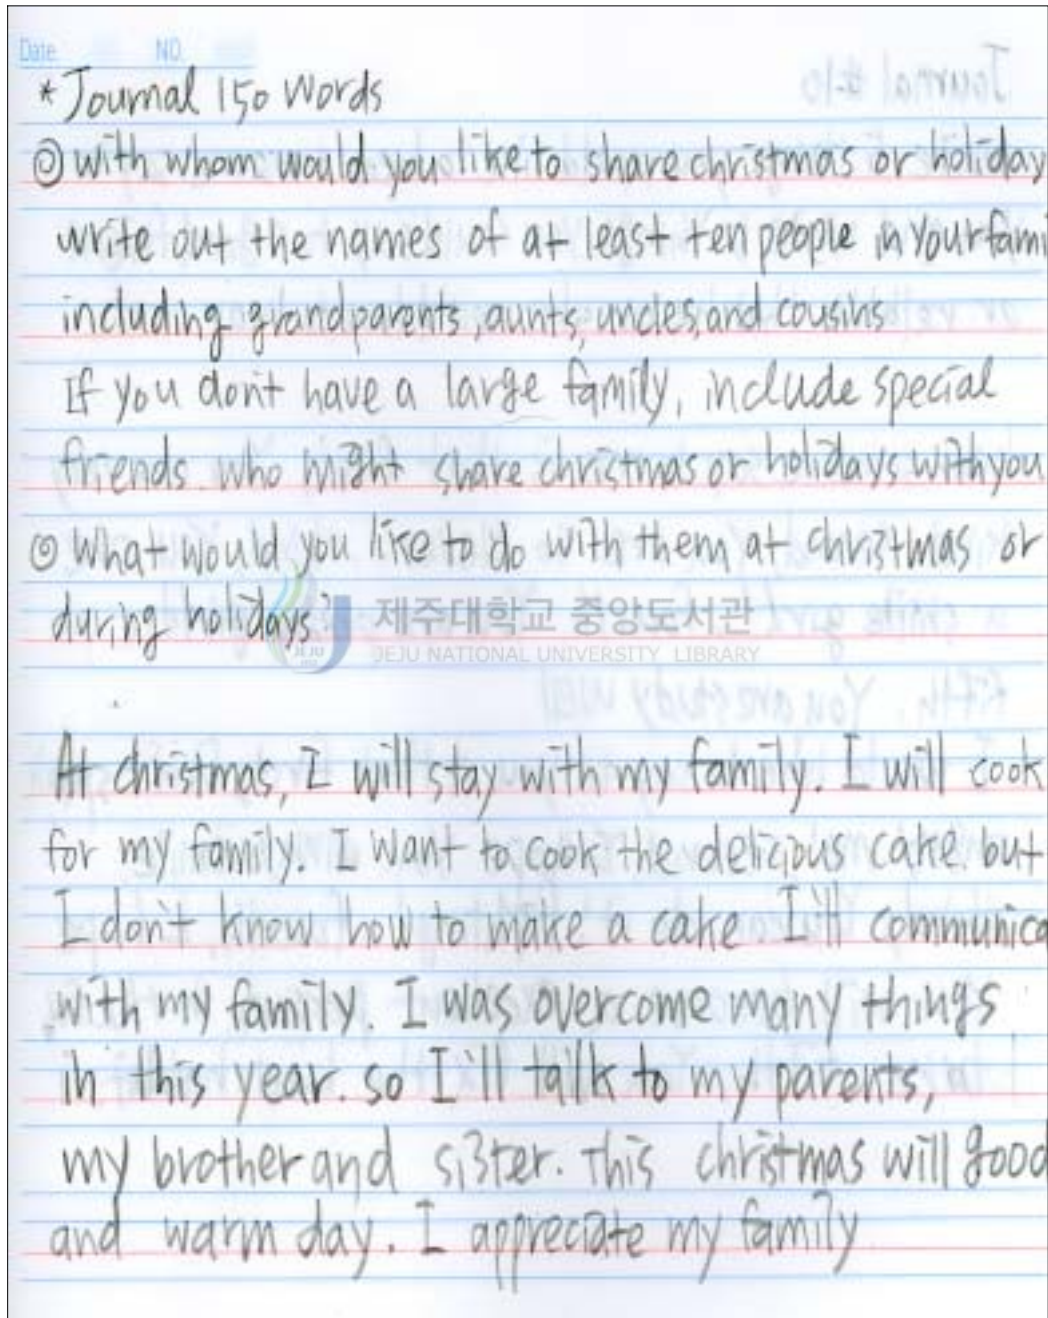 Date. NO.
*Journal 150 words
◎ with whom would you like to share christmas or holiday
write out the names of at least ten people in your fami
including grandparents, aunts, uncles, and cousins
If you don't have a large family, include special
friends who might share christmas or holidays with you
◎ What would you like to do with them at christmas or
during holidays?
제주대학교 중앙도서관
JEJU NATIONAL UNIVERSITY LIBRARY
At christmas, I will stay with my family. I will cook
for my family. I want to cook the delicious cake. but
I don't know how to make a cake I'll communica
with my family. I was overcome many things
in this year. so I'll talk to my parents,
my brother and sister. this christmas will good
and warm day. I appreciate my family